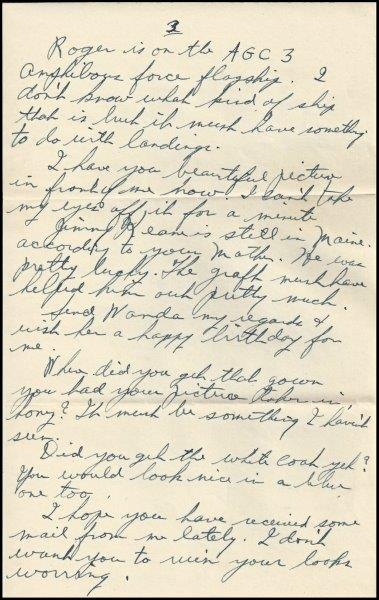 3
Roger is on the AGC 3
Amphibous force flagship. I
don't know what kind of ship
that is but it must have something
to do with landings.
I have you beautiful picture
in front of me now. I can't take
my eyes off it for a minute
Jimmy Keane is still in Maine.
according to your Mother. He was
pretty lucky. The graft must have
helped him out pretty much.
Send Wanda my regards &
wish her a happy birthday for
me.
When did you get that gown
you had your picture taken in
hony? It must be something I havn't
seen.
Did you get the white coat yet?
You would look nice in a blue
one too.
I hope you have received some
mail from me lately. I don't
want you to ruin your looks
worring.